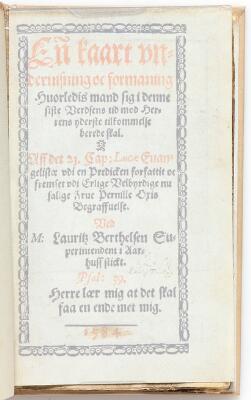 En kaart vn-
deruisning oc formaning
Huorledis mand sig i denne
siste Verdsens tid mod Her-
rens yderste tilkommelse
berede skal.
Aff det 21. Cap: Lucæ Euan-
gelistæ vdi en Predicken forfattit oc
fremset vdi Erlige Velbyrdige nu
salige Frue Pernille Oxis
Begraffuelse.
Ved
M: Lauritz Berthelsen Su-
perintendent i Aar-
huss stickt.
Psal: 39.
Herre lær mig at det skal
faa en ende met mig.
1584